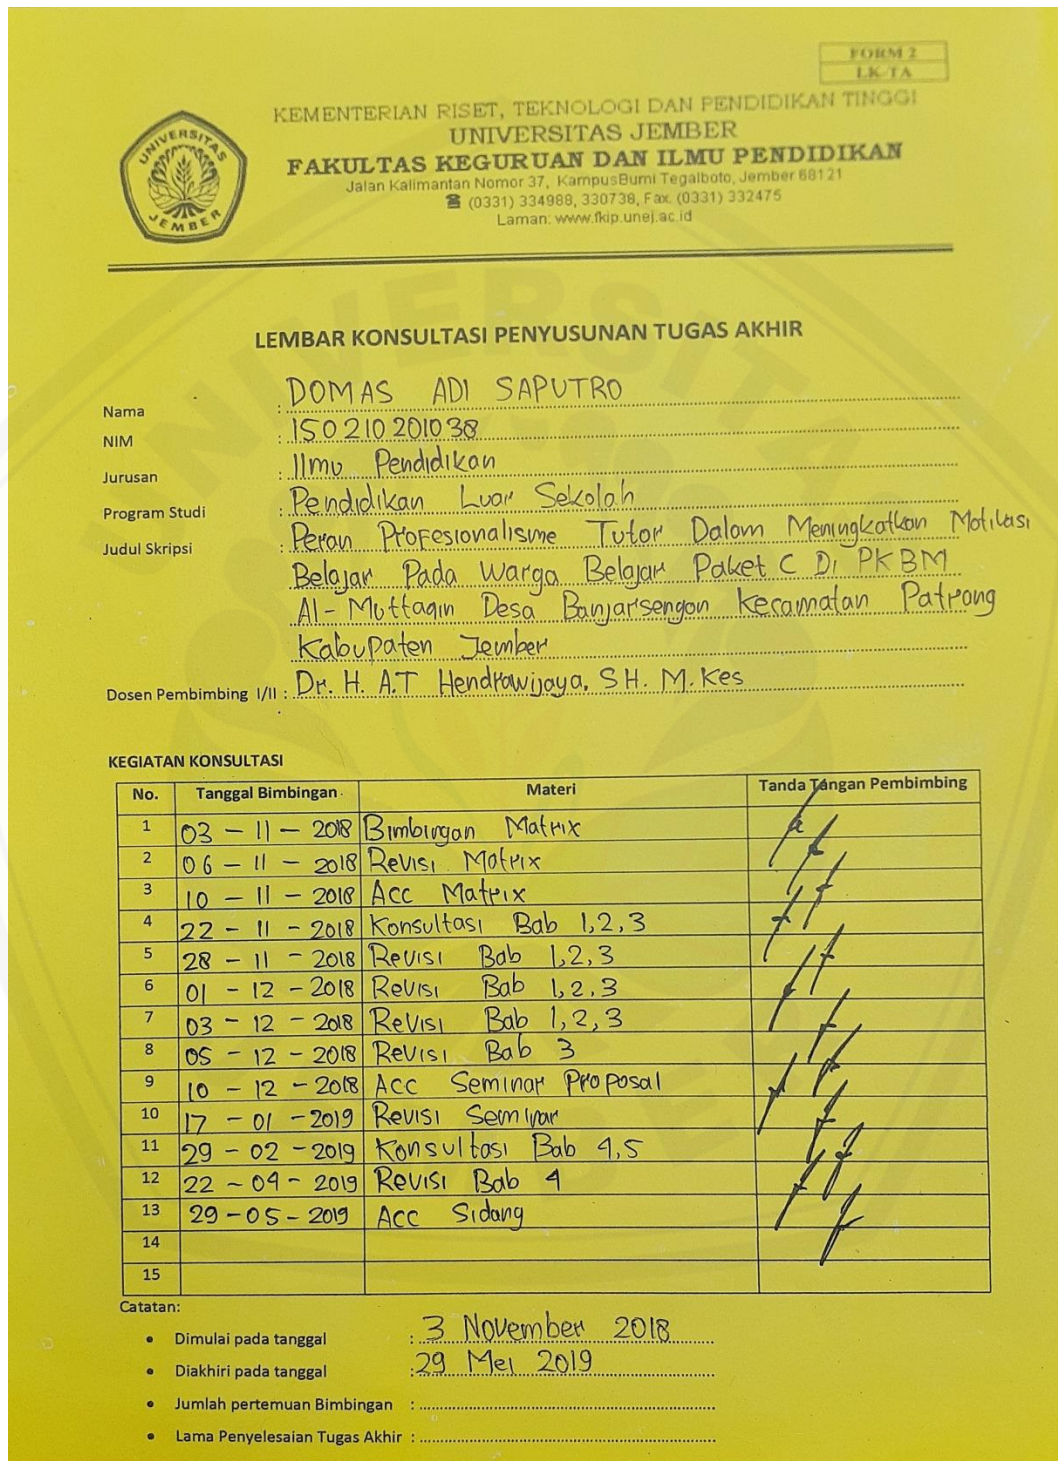 FORM 2
LK-TA
KEMENTERIAN RISET, TEKNOLOGI DAN PENDIDIKAN TINGGI
UNIVERSITAS JEMBER
FAKULTAS KEGURUAN DAN ILMU PENDIDIKAN
Jalan Kalimantan Nomor 37, KampusBumi Tegalboto, Jember 68121
☎ (0331) 334988, 330738, Fax. (0331) 332475
Laman: www.fkip.unej.ac.id
UNIVERSITAS
JEMBER
LEMBAR KONSULTASI PENYUSUNAN TUGAS AKHIR
Nama : DOMAS ADI SAPUTRO
NIM : 150210201038
Jurusan : Ilmu Pendidikan
Program Studi : Pendidikan Luar Sekolah
Judul Skripsi : Peran Profesionalisme Tutor Dalam Meningkatkan Motivasi
Belajar Pada Warga Belajar Paket C Di PKBM
Al-Muttaqin Desa Banjarsengon Kecamatan Patrang
Kabupaten Jember
Dosen Pembimbing I/II : Dr. H. A.T Hendrawijaya, SH. M.Kes
KEGIATAN KONSULTASI
No. Tanggal Bimbingan Materi Tanda Tangan Pembimbing
1 03 - 11 - 2018 Bimbingan Matrix
2 06 - 11 - 2018 Revisi Matrix
3 10 - 11 - 2018 Acc Matrix
4 22 - 11 - 2018 Konsultasi Bab 1,2,3
5 28 - 11 - 2018 Revisi Bab 1,2,3
6 01 - 12 - 2018 Revisi Bab 1,2,3
7 03 - 12 - 2018 Revisi Bab 1,2,3
8 05 - 12 - 2018 Revisi Bab 3
9 10 - 12 - 2018 Acc Seminar Proposal
10 17 - 01 - 2019 Revisi Seminar
11 29 - 02 - 2019 Konsultasi Bab 4,5
12 22 - 04 - 2019 Revisi Bab 4
13 29 - 05 - 2019 Acc Sidang
14
15
Catatan:
• Dimulai pada tanggal : 3 November 2018
• Diakhiri pada tanggal : 29 Mei 2019
• Jumlah pertemuan Bimbingan :
• Lama Penyelesaian Tugas Akhir :